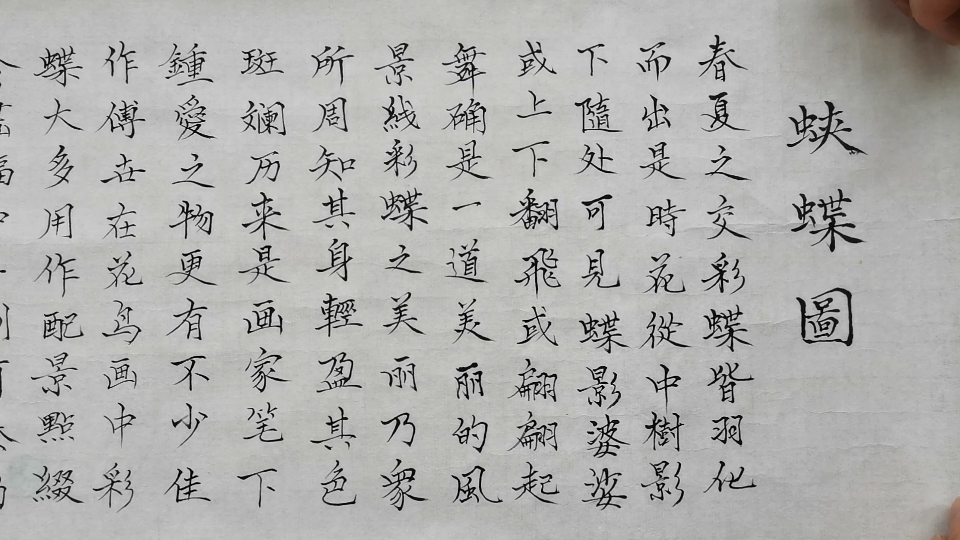 蛱蝶圖
春夏之交彩蝶皆羽化
而出是時花從中樹影
下隨处可見蝶影婆娑
或上下翻飛或翩翩起
舞确是一道美丽的風
景线彩蝶之美丽乃衆
所周知其身輕盈其色
斑斓历来是画家笔下
鍾愛之物更有不少佳
作傅世在花鸟画中彩
蝶大多用作配景點綴